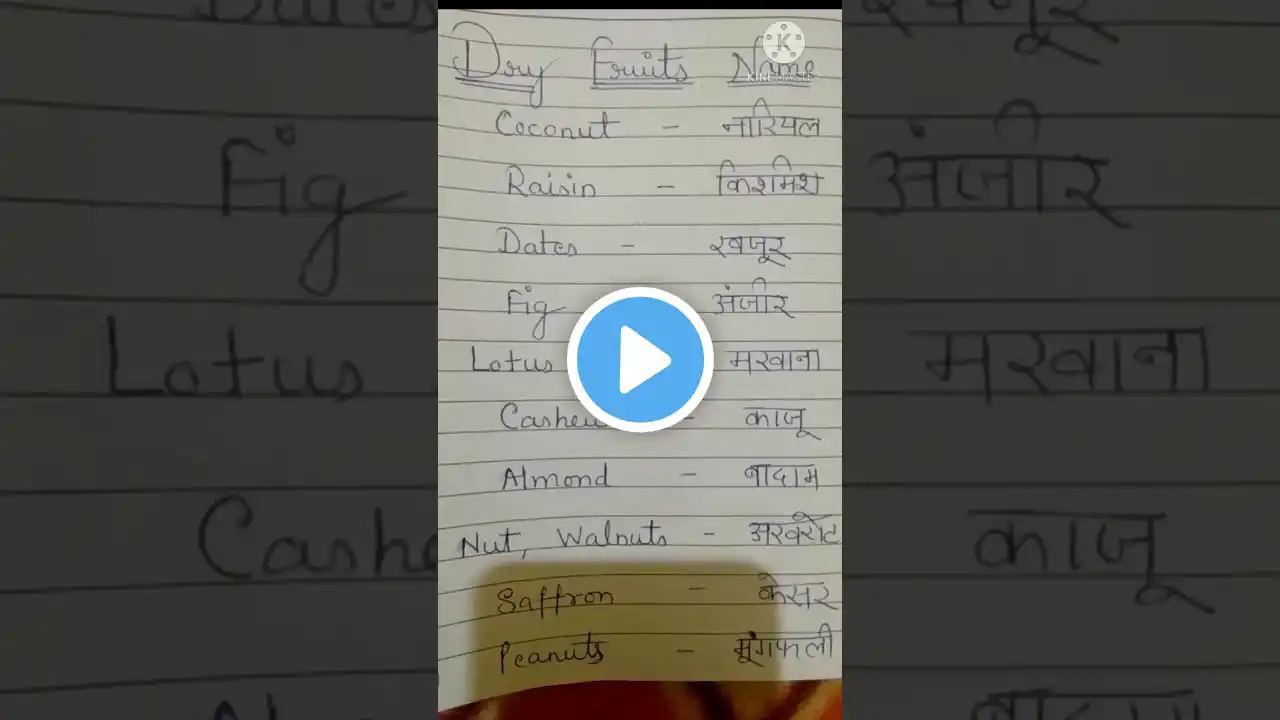 Dry Fruits Name
KINEMASTER
Coconut - नारियल
Raisin - किशमिश
Dates - खजूर
Fig अंजीर
Lotus मखाना
Cashew - काजू
Almond - बादाम
Nut, Walnuts - अखरोट
Saffron - केसर
Peanuts - मूंगफली